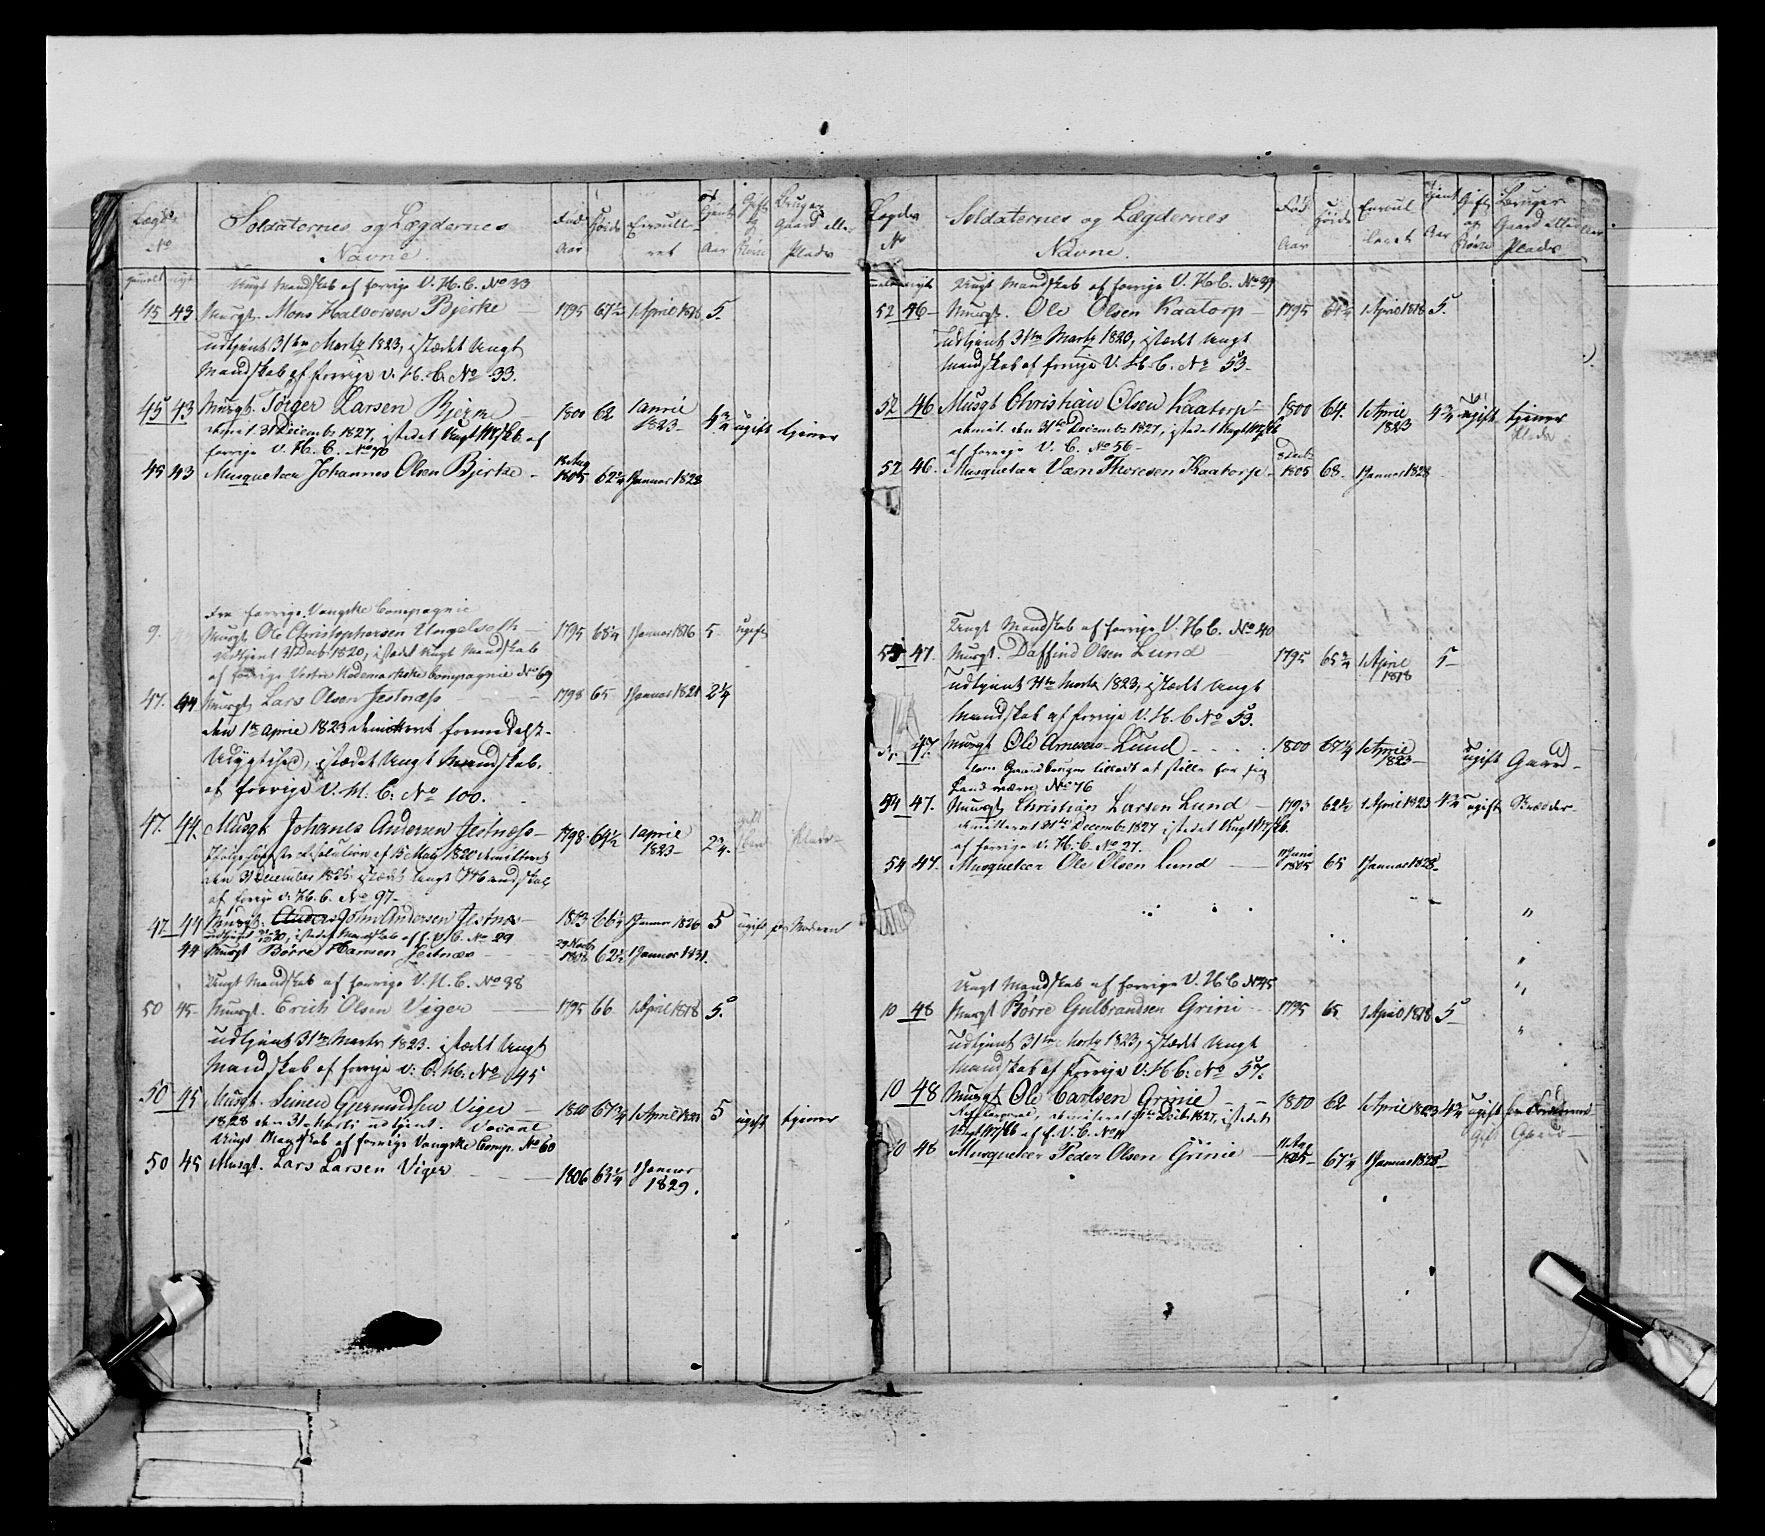 Lægds No
Soldaternes og Lægdernes Navne.
Fød Aar
Høide
Enroulleret
Tjent Aar
Gift og Børn
Bruger Gaard eller Plads
gammelt nyt
Ungt Mandskab af forrige V. H. C. No 33
45 43 Musqt. Mons Halvorsen Bjerke — 1795 67½ 1 April 1818 5.
udtjent 31te Martz 1823, istædet Ungt
Mandskab af forrige V. H. C. No 33.
45 43 Musqt. Larsen Bjerke — 1800 62 1 April 1823 4¾ ugift tjener
31 Decembr 1827, istedet Ungt Mskb. af
forrige V. H. C. No 70
45 43 Musqueteer Johannes Olsen Bjerke - 1805 62¼ 1 Januar 1828
Fra forrige Vangske Compagnie
9. Musqt Ole Christophersen — 1795 68¼ 1 Januar 1816 5 ugift
Udtjent 31 Decb 1820, istedet Ungt Mandskab
af forrige Vestre Hedemarkske Compagnie No 69
47. 44 Musqt Lars Olsen Jestnæss 1798 65 1 Januar 1821 2¼
den 1te April 1823 demitteret formedelst
Udygtighed, istædet Ungt Mandskab,
af forrige V. H. C. No 100.
47. 44. Musqt Johanes Andersen Jestnæss — 1798. 64½ 1 april 1823 — 2¾.
Resolution af 15 Maij 1820 demitteret
den 31 December 1825 istædet Ungt Mandskab
af forrige V. H. C. No 97 —
47. 44 Musqt. John Andersen Jestnæs — 1803 66¼ 1 Januar 1826 5 ugift
istedet Mandskab af f. V. C. No 29
44 Musqt Børre Hansen Jestnæs 29 Novb 1808 62½ 1 Januar 1831.
Ungt Mandskab af forrige V. H. C. No 38
50 45 Musqt. Erich Olsen Viger — 1795 66 1 April 1818 5.
udtjent 31te Martz 1823. istædet Ungt
Mandskab af forrige V. C. H. No 45
50 45 Musqt. Simen Gjermundsen Viger — 1800 67¾ 1 April 1823 5 ugift tjener
1828 den 31 Marts udtjent.
Ungt Mandskab af forrige Vangske Comp. No 60
50 45 Musqt. Lars Larsen Viger — 1806 63¼ 1 Januar 1829.
Lægds No
Soldaternes og Lægdernes Navne.
Fød Aar
Høide
Enroulleret
Tjent Aar
Gift og Børn
Bruger Gaard eller Plads
Ungt Mandskab af forrige V. H. C. No 39
52 46 — Musqt. Ole Olsen Kaatorp — 1795 64¼ 1 April 1818 5.
Udtjent 31te Martz 1823, istædet Ungt
Mandskab af forrige V. H. C. No 53 —
52 46 Musqt Christian Olsen Kaatorp — 1800 64. 1 April 1823 4¾ ugift tjener
den 31te Decembr 1827, istedet Ungt Mskb
af forrige V. C. No 56 —
52 46. Musqueteer Thoresen Kaatorp — 1805 68. 1 Januar 1828
Ungt Mandskab af forrige V. H. C. No 40
54 47. Musqt. Daffind Olsen Lund 1795 65¾ 1 April 1818 5 —
udtjent 31te Martz 1823, istædet Ungt
Mandskab af forrige V. H. C No 59.
47. Musqt Ole Arnesen Lund 1800 67¼ 1 April 1823 — ugift Gaard —
som Gaardbruger tilladt at stille for sig
Landværn No 76
54 47. Musqt Christian Larsen Lund — 1793 62½ 1 April 1823 4¾ ugift
demitteret 31te Decembr 1827 istedet Ungt Mskb.
af forrige V. H. C. No 27.
54 47. Musqueteer Ole Olsen Lund — 1805 65 1 Januar 1828 —
Ungt Mandskab af forrige V. H. C No 45
10 48 Musqt Børre Gulbrandsen Grini — 1795 65 1 April 1818 5 —
udtjent 31te Martz 1823, istædet Ungt
Mandskab af forrige V. H. C. No 57.
10 48 Musqt Ole Carlsen Grinie — 1800 62 1 April 1823 4¾ ugift
demiteret 31te Decb 1827, istedet
Ungt Mskb af f. V. C. No Gift Gaard —
10 48 Musqueteer Peder Olsen Grinie — 1805 — 67¼ 1 Januar 1828 —